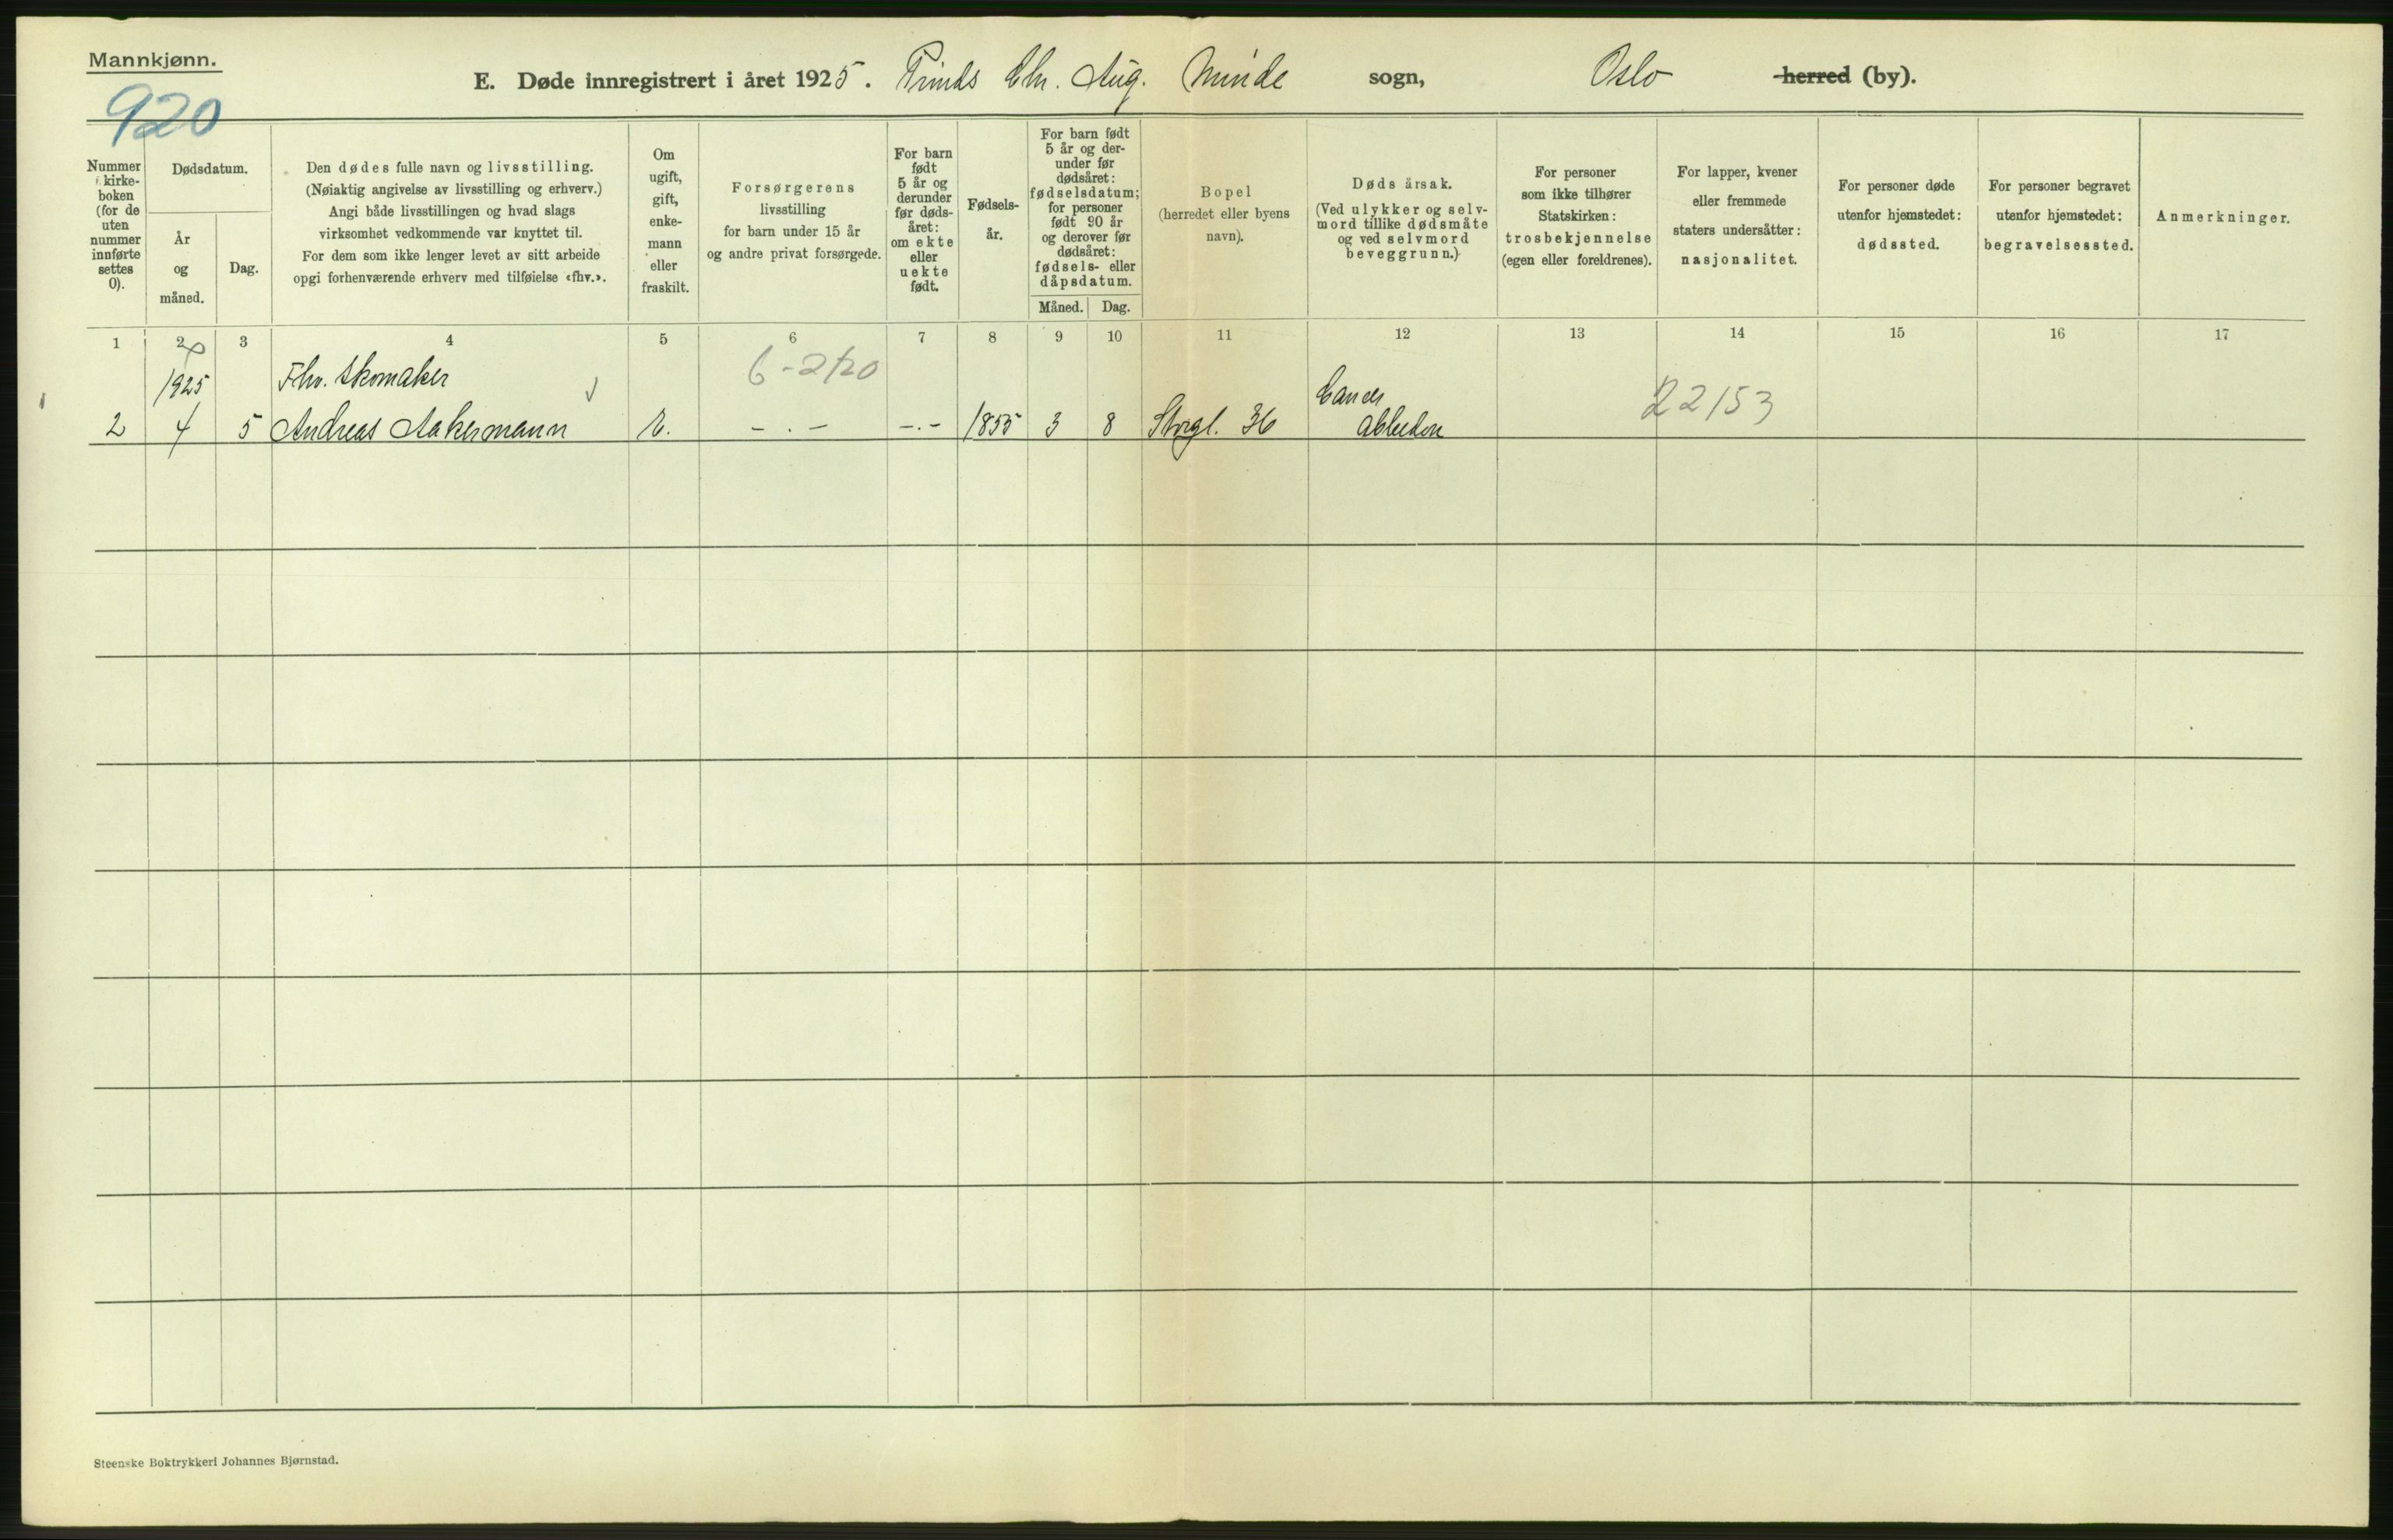 Mannkjønn.
920
E. Døde innregistrert i året 1925. Prinds Chr. Aug. Minde sogn, Oslo herred (by).
Nummer
i kirke-
boken
(for de
uten
nummer
innførte
settes
0).
Dødsdatum.
År
og
måned.
Dag.
Den dødes fulle navn og livsstilling.
(Nøiaktig angivelse av livsstilling og erhverv.)
Angi både livsstillingen og hvad slags
virksomhet vedkommende var knyttet til.
For dem som ikke lenger levet av sitt arbeide
opgi forhenværende erhverv med tilføielse «fhv.».
Om
ugift,
gift,
enke-
mann
eller
fraskilt.
Forsørgerens
livsstilling
for barn under 15 år
og andre privat forsørgede.
For barn
født
5 år og
derunder
før døds-
året:
om ekte
eller
uekte
født.
Fødsels-
år.
For barn født
5 år og der-
under før
dødsåret:
fødselsdatum;
for personer
født 90 år
og derover før
dødsåret:
fødsels- eller
dåpsdatum.
Måned. Dag.
Bopel
(herredet eller byens
navn).
Dødsårsak.
(Ved ulykker og selv-
mord tillike dødsmåte
og ved selvmord
beveggrunn.)
For personer
som ikke tilhører
Statskirken:
trosbekjennelse
(egen eller foreldrenes).
For lapper, kvener
eller fremmede
staters undersåtter:
nasjonalitet.
For personer døde
utenfor hjemstedet:
dødssted.
For personer begravet
utenfor hjemstedet:
begravelsessted.
Anmerkninger.
1 2 3 4 5 6 7 8 9 10 11 12 13 14 15 16 17
1925 Fhv. Skomaker 6-2/20 Cancer 22153
2 4 5 Andreas Aakermann - . - - . - 1855 3 8 Storgt. 36
Steenske Boktrykkeri Johannes Bjørnstad.